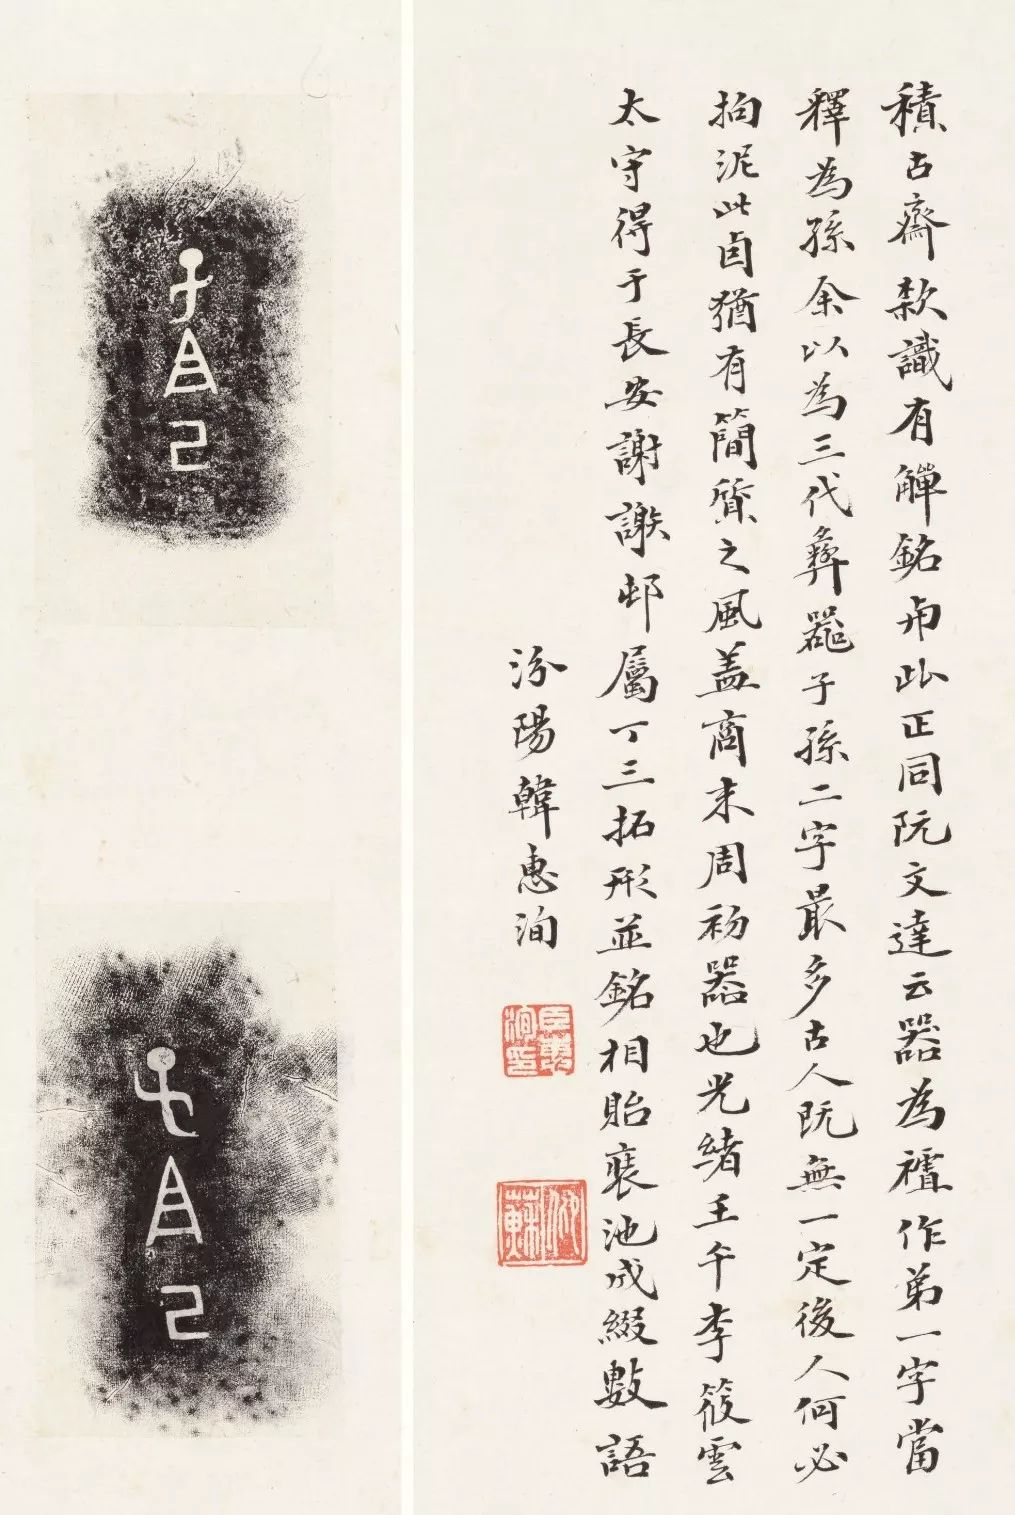 積古齋款識有觶銘與此正同阮文達云器為禮作弟一字當
釋為孫余以為三代彝器子孫二字最多古人既無一定後人何必
拘泥此卣猶有簡質之風蓋商末周初器也光緒壬午李筱雲
太守得于長安謝謝邨屬丁三拓形並銘相貽裝池成綴數語
汾陽韓惠洵
臣惠洵印